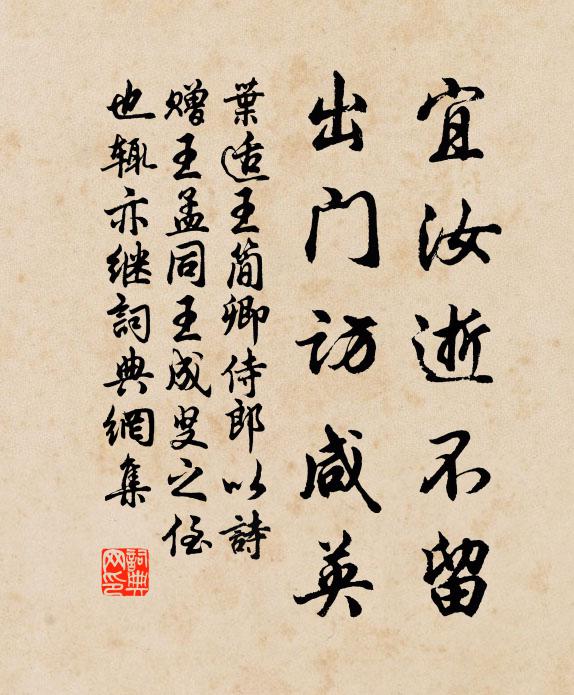 宜汝逝不留
出门访咸英
葉适王简卿侍郎以詩
赠王孟同王成叟之侄
也辄亦继詞典網集
詞典网印